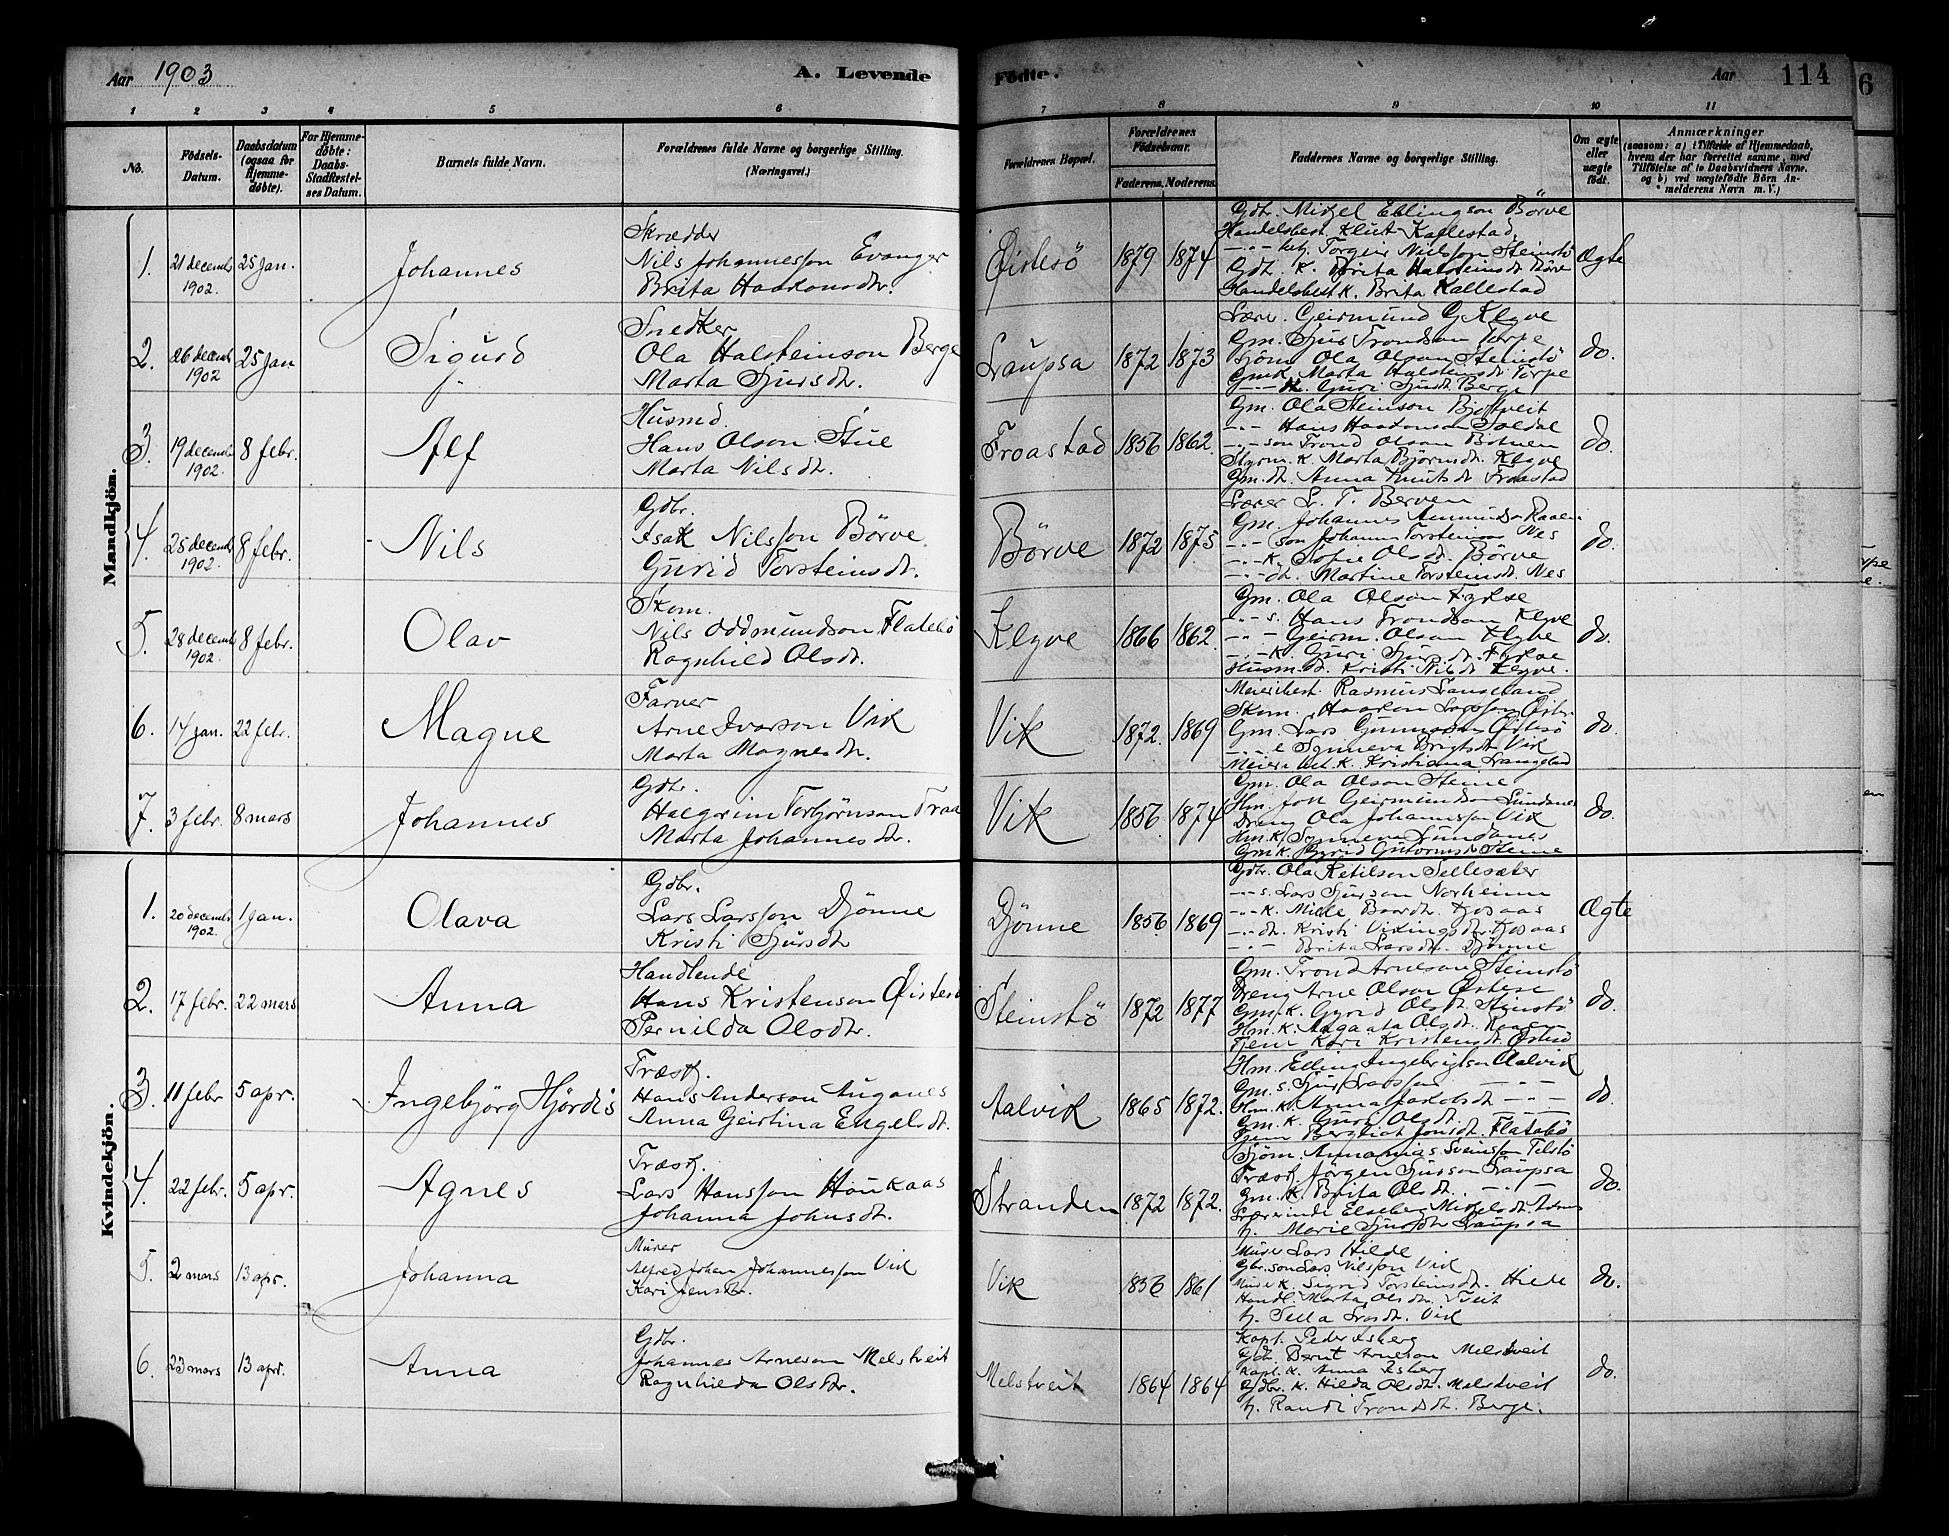 Aar 1903 A. Levende Födte. Aar 114 6
1 2 3 4 5 6 7 8 9 10 11
No. Födsels-Datum. Daabsdatum (ogsaa for Hjemme-döbte). For Hjemme-döbte: Daabs-Stadfæstel-ses Datum. Barnets fulde Navn. Forældrenes fulde Navne og borgerlige Stilling. (Næringsvei.) Forældrenes Bopæl. Forældrenes Födselsaar. Faderens. Moderens. Faddernes Navne og borgerlige Stilling. Om ægte eller uægte födt. Anmærkninger (saasom: a) i Tilfælde af Hjemmedaab, hvem der har forrettet samme, med Tilföielse af to Daabsvidners Navne, og b) ved uægtefödte Börn An-melderens Navn m. V.)
Mandkjön.
1. 21 decemb 1902. 25 jan. Johannes
Skrædder
Nils Johannesson Evanger
Brita Haakonsdtr.
Øistesö 1879 1874
Gdbr. Mikjel Ellingson Börve
Handelsbest. Klist Kallestad
Torgeir Nilsson Steinstö
Gdb. K. Brita Halsteinsdt Börve
Handelsbest K. Brita Kallestad
Ægte
2. 26 decemb 1902 25 jan Sigurd
Snedker
Ola Halsteinson Berge
Marta Sjursdtr.
Laupsa 1872 1873
Lærer. Geirmund G Klyve
Gm. Sjur Trondson Torpe
Sjöm Ola Olson Steinstö
Gmk Marta Halsteinsdt Torpe
Guri Sjursdt. Berge
do.
3. 19 decemb 1902. 8 febr. Alf
Husmd.
Hans Olson Stue
Marta Nilsdtr.
Froastad 1856 1862.
Gm. Ola Steinson Bjotveit
-"- Hans Haakonson Soldal
-"- son Trond Olson Botnen
Styrm. K. Marta Björnsdt. Klyve
Gm. dt. Anna Knutsdt Froastad
do.
4. 25 decemb 1902. 8 febr. Nils
Gdbr.
Isak Nilsson Börve
Gurid Torsteinsdtr.
Börve 1872 1875
Lærer L. T. Berven
Gm. Johannes Aamundson Raaen
-"- son Johannes Torsteinson Nes
-"- K. Sofie Olsdt. Börve
-"- dt. Martine Torsteinsdt. Nes
do.
5. 28 decemb 1902. 8 febr. Olav
Skom.
Nils Oddmundson Flatebö
Ragnhild Olsdt.
Klyve 1866 1862.
Gm. Ola Olson Fykse
-"- s. Hans Trondson Klyve
-"- Geirm. Olson Klyve
-"- K. Guri Sjursdt. Fykse
Husm. dt. Kristi Nilsdt Klyve.
do.
6. 14 jan. 22 febr. Magne
Farver
Arne Ivarson Vik
Marta Magnesdtr.
Vik 1872. 1869
Meieribest. Rasmus Langeland
Skom. Haakon Larsson
Gm. Lars Gunnarson Østesö
Synneva Brigtsdt Vik
Meieribest. K. Kristiana Langeland
do.
7. 3 febr. 8 mars Johannes
Gdbr.
Halgrim Torbjörnson Traa
Marta Johannesdtr.
Vik 1856. 1874
Gm. Ola Olson Steine
Hm. Jon Geirmundson Lundanes
Dreng Ola Johannesson Vik
Hm. K. Synneva Lundanes
Gm K. Gyrid Gutormsdt Steine
do.
Kvindekjön.
1. 20 decemb 1902. 1 jan. Olava
Gdbr.
Lars Larsson Djönne
Kristi Sjursdtr
Djönne 1856. 1869
Gdbr. Ola Ketilson Sellesæter
-"- s. Lars Sjurson Norheim
-"- K. Milli Baardt. Kosaas
-"- dt. Kristi Vikingsdt. Kosaas
-"- Brita Larsdt. Djönne
Ægte
2. 17 febr. 22 mars Anna
Handlende
Hans Kristenson Øistesö
Pernilda Olsdtr.
Steinstö 1872 1877
Gm. Trond Arneson Steinstö
Dreng Arne Olson Østese
Gm. K. Gyrid Olsdt. Steinstö
Hm. K. Aagaata Olsdt.
Tjen. Kari Kristensdt. Østesö
do.
3. 11 febr 5 apr. Ingebjörg Hjördis
Træsk.
Hans Anderson Auganes
Anna Geirtina Engelsdt.
Aalvik 1865 1872.
Hm. Elling Ingebrigtson Aalvik
Gm. s. Sjur Larsson -"-
Hm. K. Anna Jakobsdt -"-
Gm. K. Guro Olsdt.
Tjen Bergliot Jonsdt. Flatebö
do.
4. 22 febr. 5 apr. Agnes
Træsk.
Lars Hansson Haukaas
Johanna Johnsdt.
Stranden 1872 1872.
Sjöm. Annanias Sveinsson Tolstö
Træsk. Jörgen Sjurson Laupsa
Gm. K. Brita Olsdt. -"-
Lærerinde Elseberg Mikkelsdt.
p. Marie Sjursdt Laupsa
do.
5. 2 mars 13 apr. Johanna
Murer
Alfred Johan Johannesson Vik
Kari Jensdtr.
Vik 1856 1861
Murer Lars Hilde
Gbr. son Lars Nilsson Vik
Murer K. Sigrid Torsteinsdt. Hilde
Handl. Marta Olsdt. Tveit
p. Sella Larsdt. Vik
do.
6. 23 mars 13 apr. Anna
Gdbr.
Johannes Arneson Melstveit
Ragnhilda Olsdtr.
Melstveit 1864 1864
Kapt. Peder Asberg
Gdb. Bernt Arneson Melstveit
Kapt. K. Anna Asberg
Gdbr. K. Hilda Olsdt. Melstveit
p. Randi Trondsdt. Berge.
do.